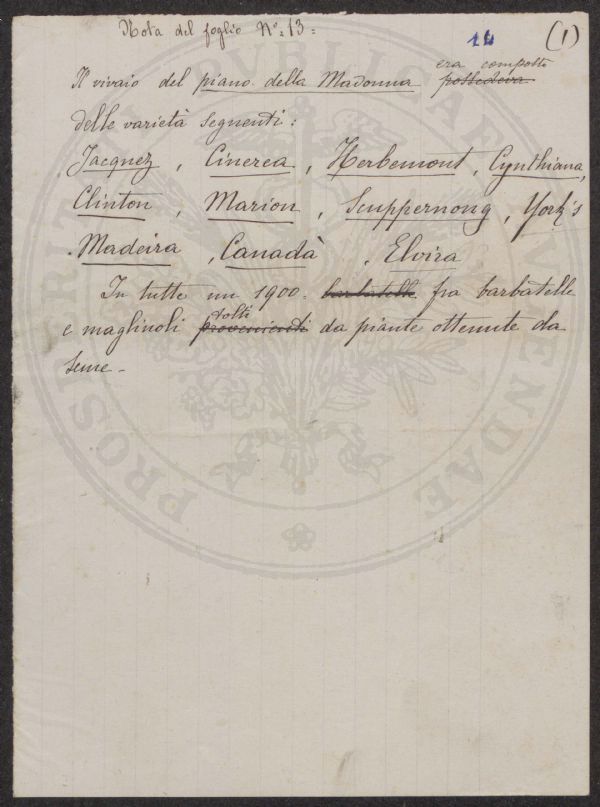 Nota del foglio Nº. 13 =
14 (1)
Il vivaio del piano della Madonna era composto possedeva
delle varietà seguenti:
Jacquez, Cinerea, Herbemont, Cynthiana,
Clinton, Marion, Scuppernong, York's
Madeira, Canadà, Elvira
In tutte un 1900 = barbatelle fra barbatelle
e magliuoli tolti provenienti da piante ottenute da
seme -
PUBLICAE
PROSPERITATI
AUGENDAE